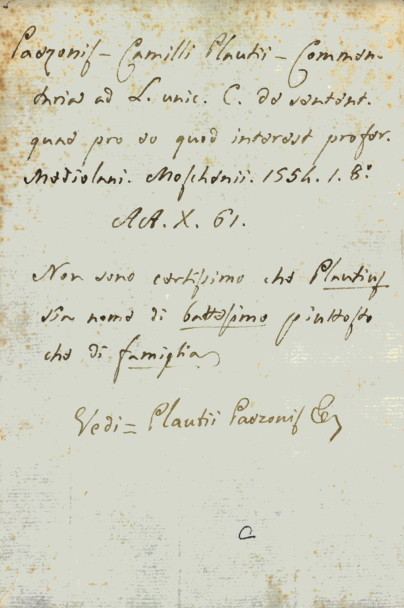 Paezonis - Camilli Plautii - Commen-
taria ad L. unic. C. de sentent.
quae pro eo quod interest profer.
Mediolani. Moschenii. 1554. 1. 8.°
AA. X. 61.
Non sono certissimo che Plautius
sia nome di battesimo piuttosto
che di famiglia
Vedi = Plautii Paezonis &
C